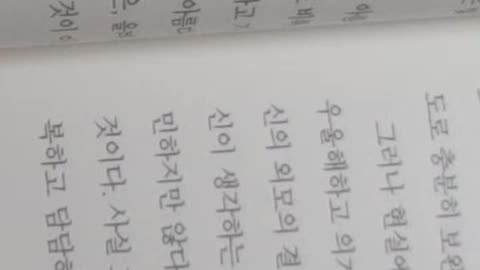 하고
것이
도로 충분히 보완
그러나 현실에
우울해하고 의기
신의 외모의 결
신이 생각하는
민하지만 않다
것이다. 사실
복하고 담담하